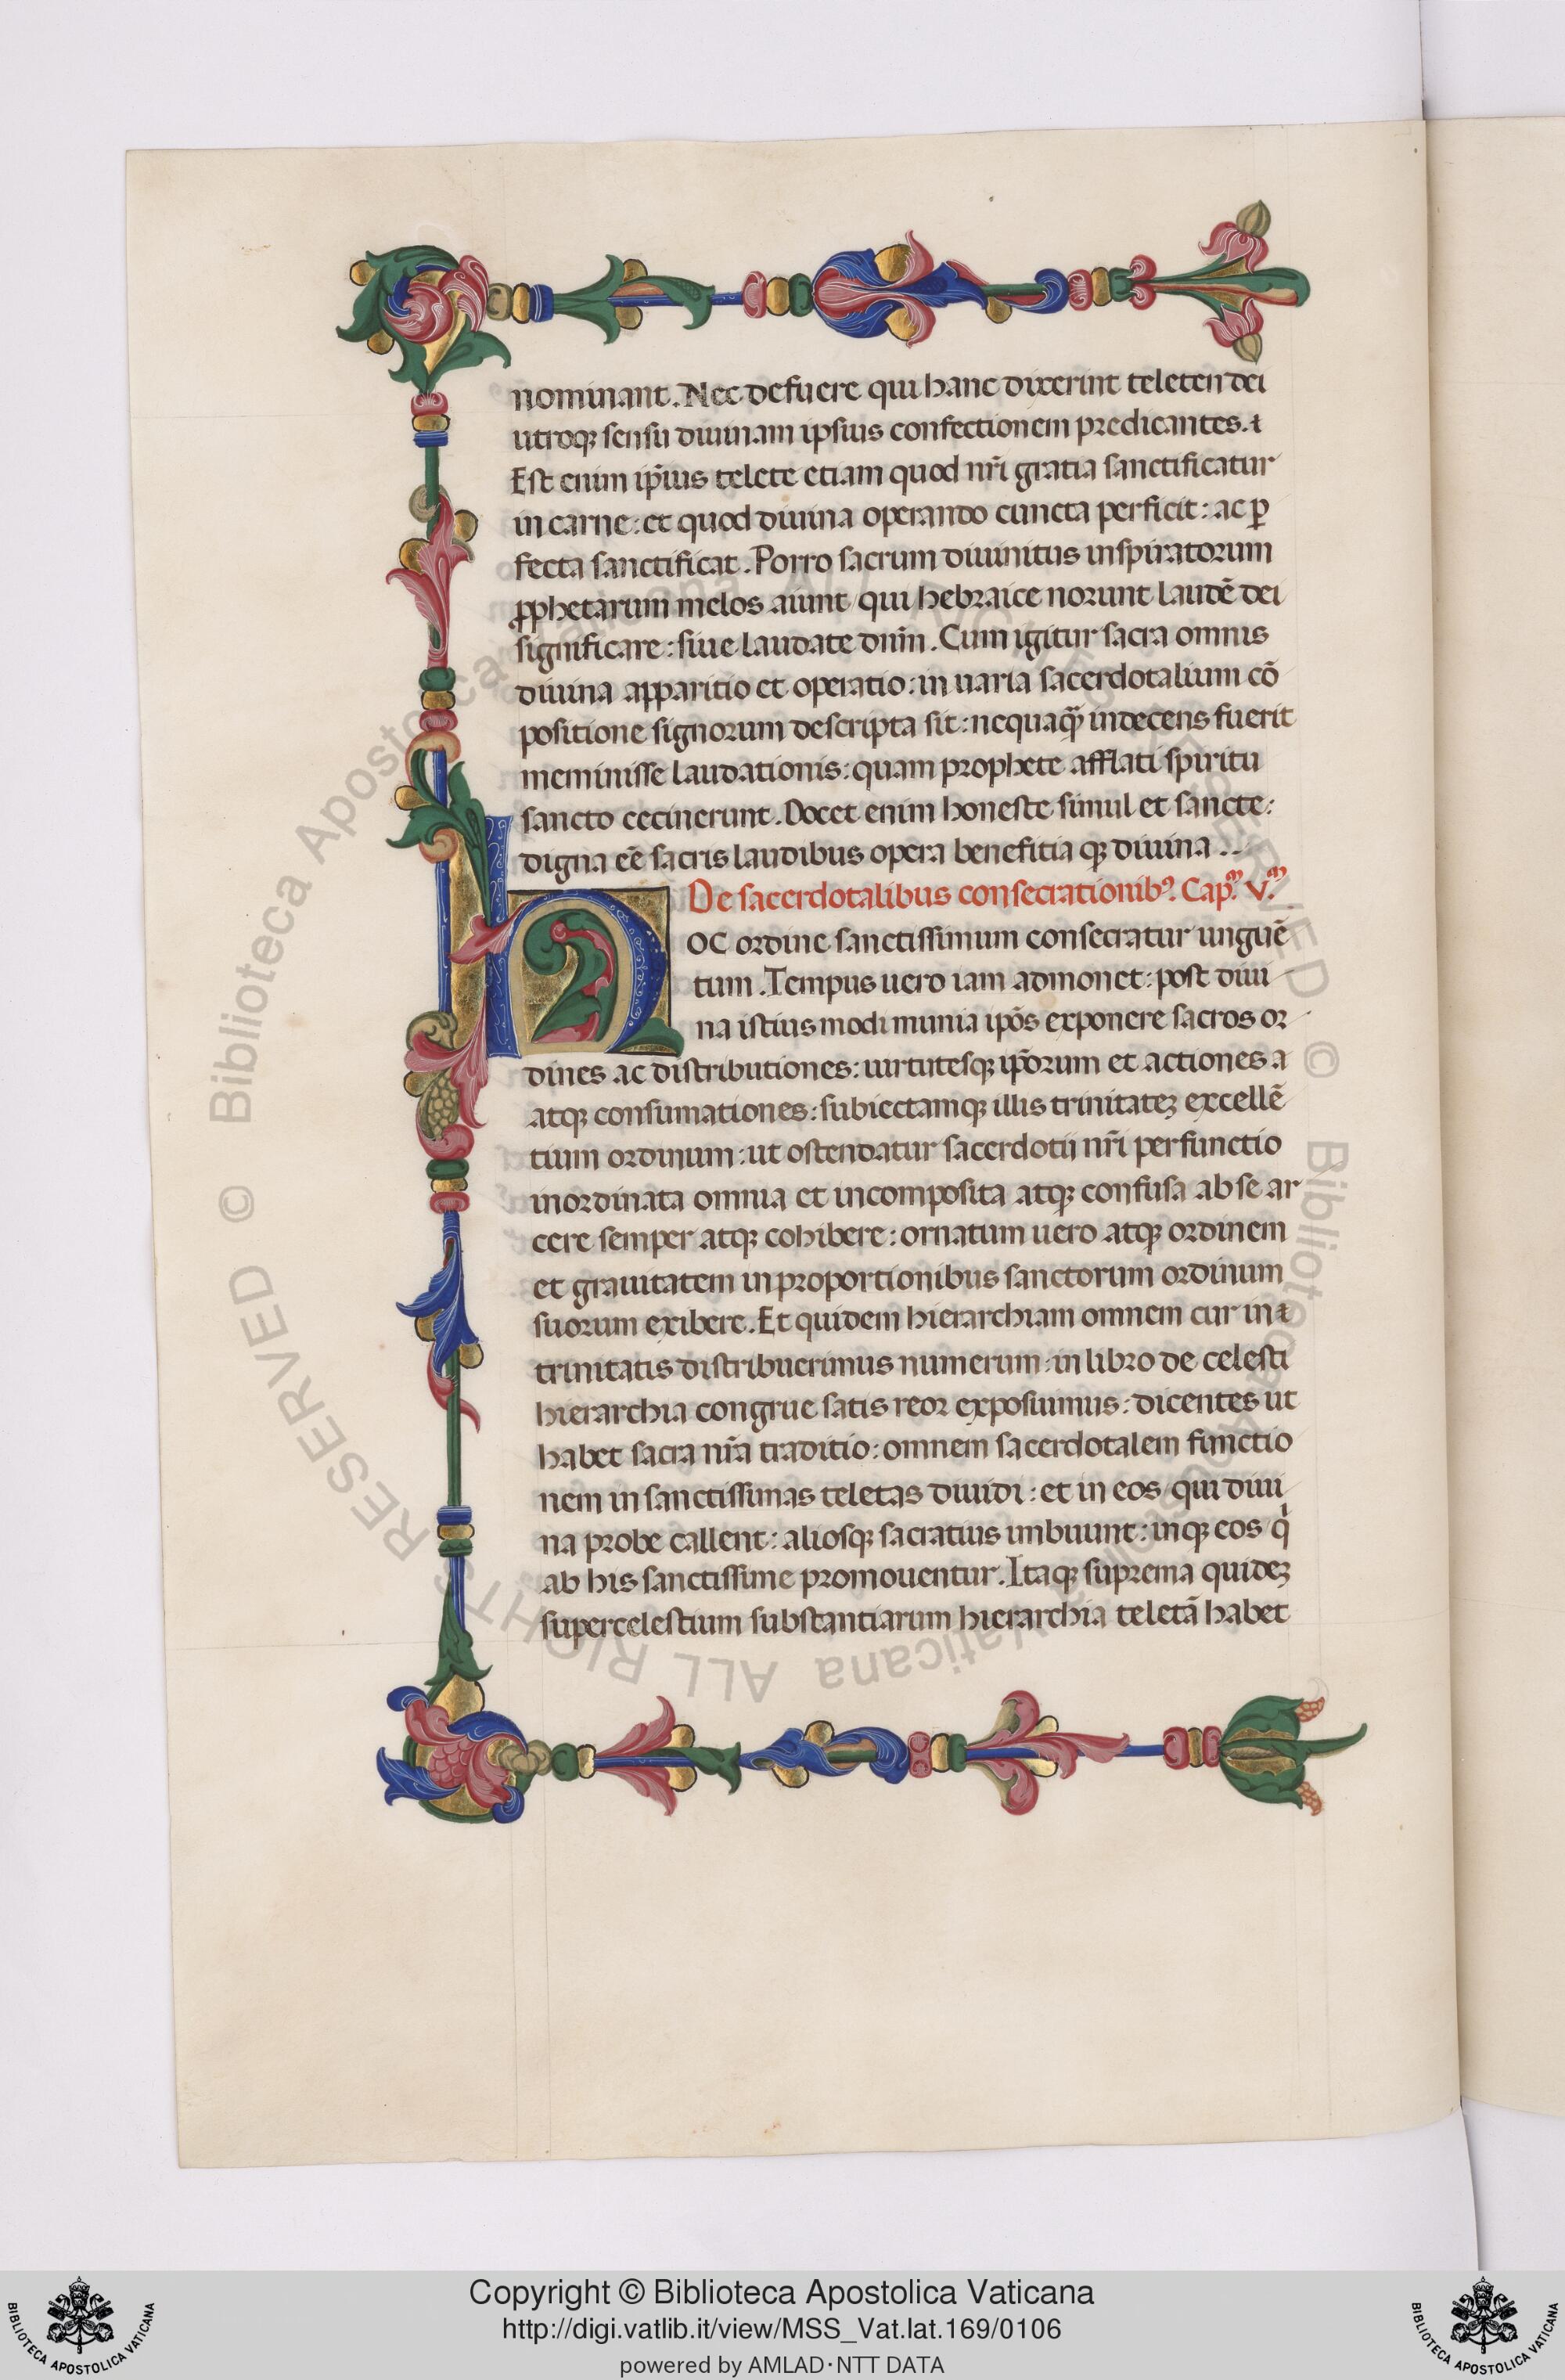 nominant. Nec defuere qui hanc dixerint teleten dei
utroqꝫ sensu diuinam ipsius confectionem predicantes. ⁊
Est enim ip̄ius telete etiam quod nr̄i gratia sanctificatur
in carne: et quod diuina operando cuncta perficit: ac ꝑ
fecta sanctificat. Porro sacrum diuinitus inspiratorum
ꝓphetarum melos aiunt / qui hebraice norunt laudē dei
significare: siue laudate dnm̄. Cum igitur sacra omnis
diuina apparitio et operatio: in uaria sacerdotalium cō
positione signorum descripta sit: nequaqꝫ̄ indecens fuerit
meminisse laudationis: quam prophete afflati spiritu
sancto cecinerunt. Docet enim honeste simul et sancte:
digna eē sacris laudibus opera benefitia qꝫ diuina . .
De sacerdotalibus consecrationibꝰ. Cap.ᵐ V.ᵐ
HOC ordine sanctissimum consecratur unguē
tum. Tempus uero iam admonet: post diui
na istius modi munia ip̄os exponere sacros or
dines ac distributiones: uirtutesqꝫ ip̄orum et actiones a
atqꝫ consumationes: subiectamqꝫ illis trinitateꝫ excellē
tium ordinum: ut ostendatur sacerdotii nr̄i perfunctio
inordinata omnia et incomposita atqꝫ confusa ab se ar
cere semper atqꝫ cohibere: ornatum uero atqꝫ ordinem
et grauitatem in proportionibus sanctorum ordinum
suorum exibere. Et quidem hierarchiam omnem cur in ⁊
trinitatis distribuerimus numerum: in libro de celesti
hierarchia congrue satis reor exposuimus: dicentes ut
habet sacra nr̄a traditio: omnem sacerdotalem functio
nem in sanctissimas teletas diuidi: et in eos / qui diui
na probe callent: aliosqꝫ sacratius imbuunt: inqꝫ eos qͥ
ab his sanctissime promouentur. Itaqꝫ suprema quideꝫ
supercelestium substantiarum hierarchia teletā habet
© Biblioteca Apostolica Vaticana ALL RIGHTS RESERVED © Biblioteca Apostolica Vaticana ALL RIGHTS RESERVED
Copyright © Biblioteca Apostolica Vaticana
http://digi.vatlib.it/view/MSS_Vat.lat.169/0106
powered by AMLAD·NTT DATA
BIBLIOTECA APOSTOLICA VATICANA
BIBLIOTECA APOSTOLICA VATICANA